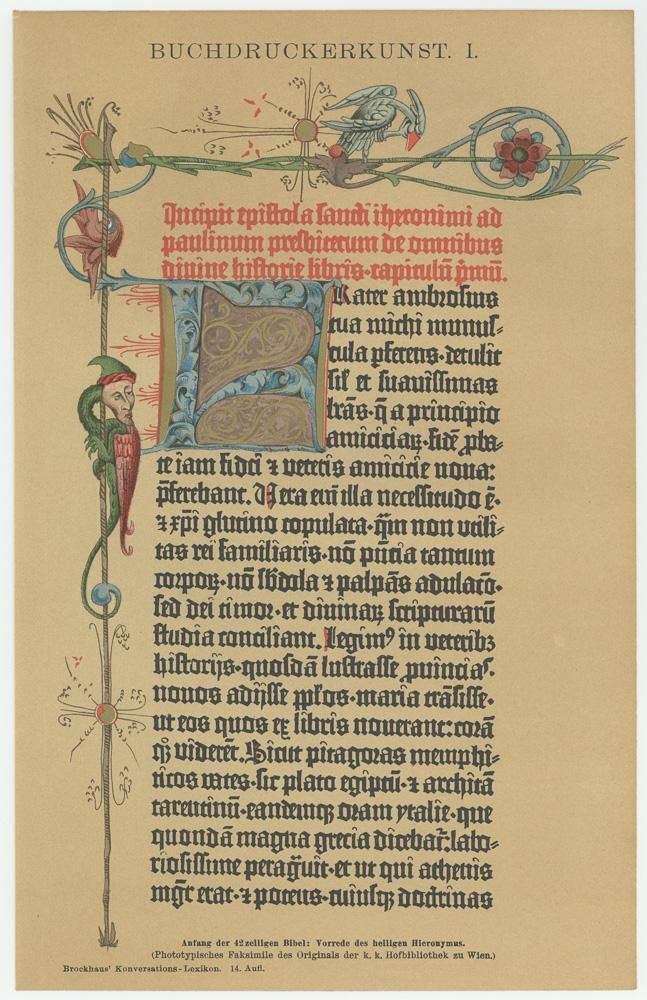 BUCHDRUCKERKUNST. I.
Incipit epistola sancti iheronimi ad
paulinum presbiterum de omnibus
divine historie libris·capitulū p̄mū.
Frater ambrosius
tua michi munus-
cula pferens·detulit
sil' et suavissimas
lr̄as·q̄ a principio
amiciciaꝝ·fidē ꝓba-
te iam fidei ⁊ veteris amicicie nova:
p̄ferebant. Uera em̄ illa necessitudo ē·
⁊ xp̄i glutino copulata·q̄m non utili-
tas rei familiaris·nō pn̄tia tantum
corpoꝝ·nō sb̄dola ⁊ palpās adulacō·
sed dei timor·et divinaꝝ scripturarū
studia conciliant. Legimꝰ in veteribꝫ
historijs·quosdā lustrasse ꝓvincias·
novos adijsse pp̄los·maria trāsisse·
ut eos quos ex libris noverant: corā
qꝫ viderēt. Sicut pitagoras memphi-
ticos vates·sic plato egiptū·⁊ architā
tarentinū·eandemqꝫ oram ytalie·que
quondā magna grecia dicebat̄: labo-
riosissime peragᷓvit·et ut qui athenis
mgr̄ erat·⁊ potens·cuiusqꝫ doctrinas
Anfang der 42zeiligen Bibel: Vorrede des heiligen Hieronymus.
(Phototypisches Faksimile des Originals der k. k. Hofbibliothek zu Wien.)
Brockhaus' Konversations-Lexikon. 14. Aufl.